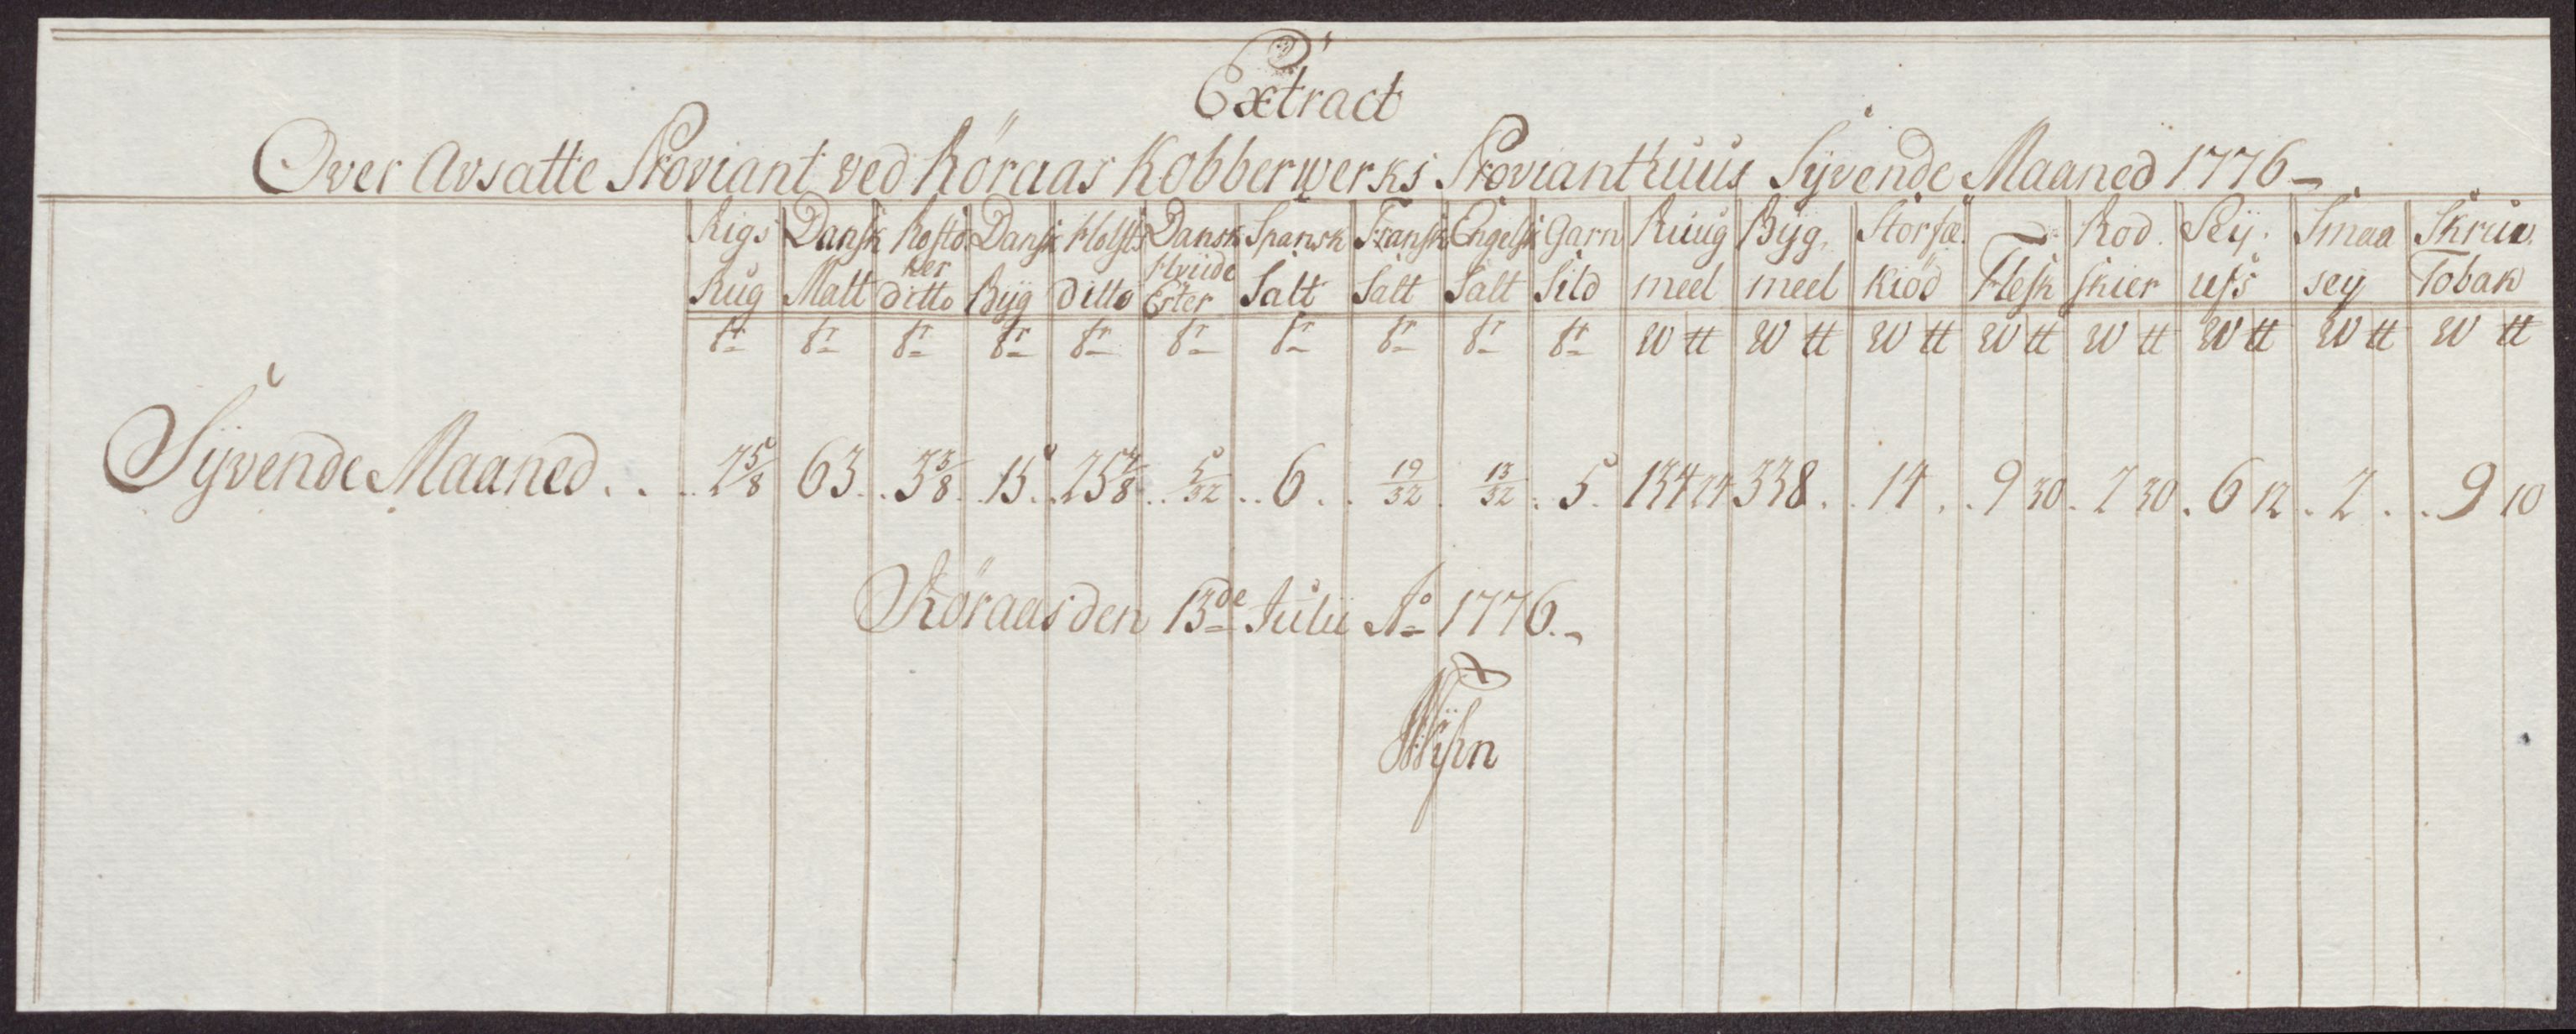 Extract
Over Avsatte Proviant ved Röraas Kobberwerks Provianthuus Syvende Maaned 1776
Rigs Rug | Dansk Malt | Rosto ker ditto | Dansk Byg | Holst: ditto | Dansk Hviide Erter | Spansk Salt | Fransk Salt | Engelsk Salt | Garn Sild | Ruug meel | Byg, meel | Storfæ kiöd | Flesk | Rod. skier | Sey. ufs | Smaa sey | Skrue, Tobak
tr | tr | tr | tr | tr | tr | tr | tr | tr | tr | W ℔ | W ℔ | W ℔ | W ℔ | W ℔ | W ℔ | W ℔ | W ℔
Syvende Maaned . . 2 5/8 | 63 | 3 3/8 | 15 | 25 4/8 | 5/32 | 6 | 19/32 | 13/32 | 5 | 134 24 | 338 | 14 | 9 30 | 2 30 | 6 12 | 2 | 9 10
Röraas den 13de Julii Ao 1776.